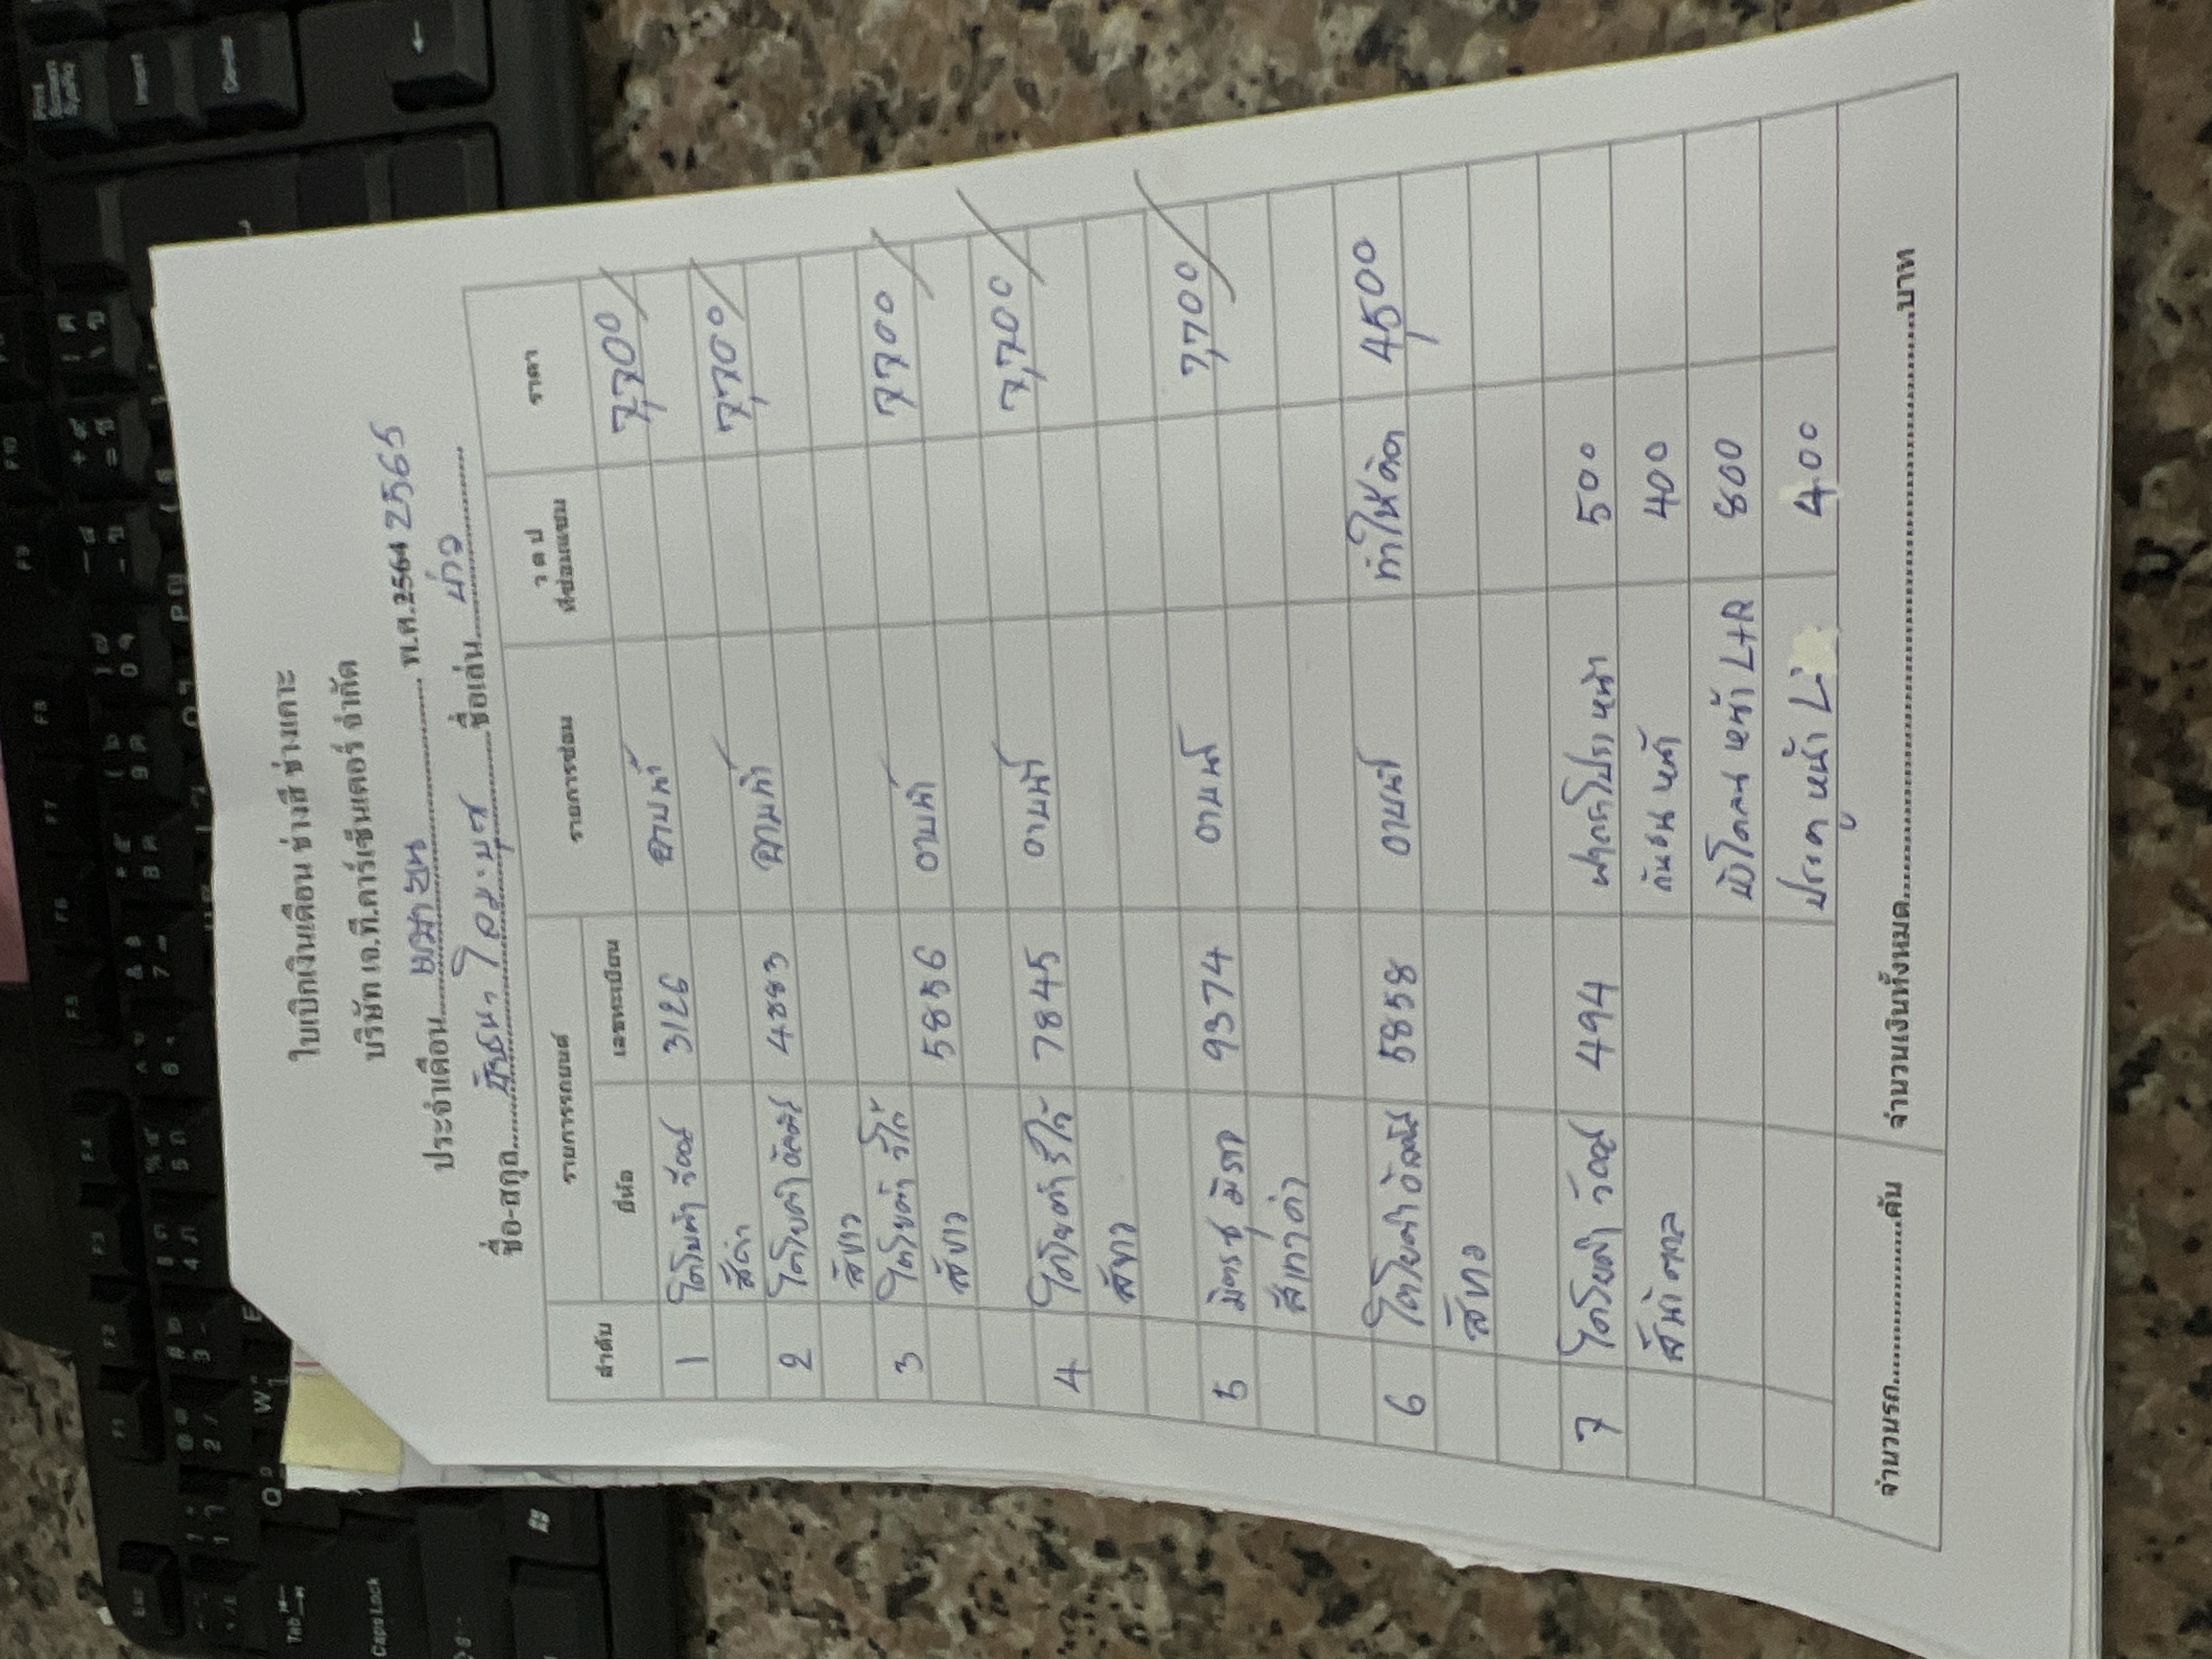 ใบเบิกเงินเดือน ช่างสี ช่างเคาะ
บริษัท เอ.ที.คาร์เซ็นเตอร์ จำกัด
ประจำเดือน เมษายน พ.ศ.2564 2565
ชื่อ-สกุล ชื่อเล่น บ่าว
ลำดับ รายการรถยนต์ รายการซ่อม ว ด ป ที่ซ่อมแซม ราคา
ยี่ห้อ เลขทะเบียน
1 โตโยต้า วีออส 3126 อาบน้ำ 7,700
สีดำ
2 โตโยต้า อัลติส 4883 อาบน้ำ 7,700
สีขาว
3 โตโยต้า วีโก้ 5856 อาบน้ำ 7700
สีขาว
4 โตโยต้า รีโว้ 7845 อาบน้ำ 7,700
สีขาว
5 มิตรซู มิราจ 9374 อาบน้ำ 7,700
สีเทาดำ
6 โตโยต้า อัลติส 5858 อาบน้ำ ทำให้คิด 4,500
สีขาว
7 โตโยต้า วีออส 494 ฝากระโปรงหน้า 500
สีน้ำตาล กันชนหน้า 400
บังโคลนหน้า L+R 800
ประตูหน้า L 400
จำนวนรถ คัน จำนวนเงินทั้งหมด บาท
Print Screen SysRq
Insert
Delete
Esc
Tab
Caps Lock
F1
F2
F3
F4
F5
F6
F7
F8
F9
F10